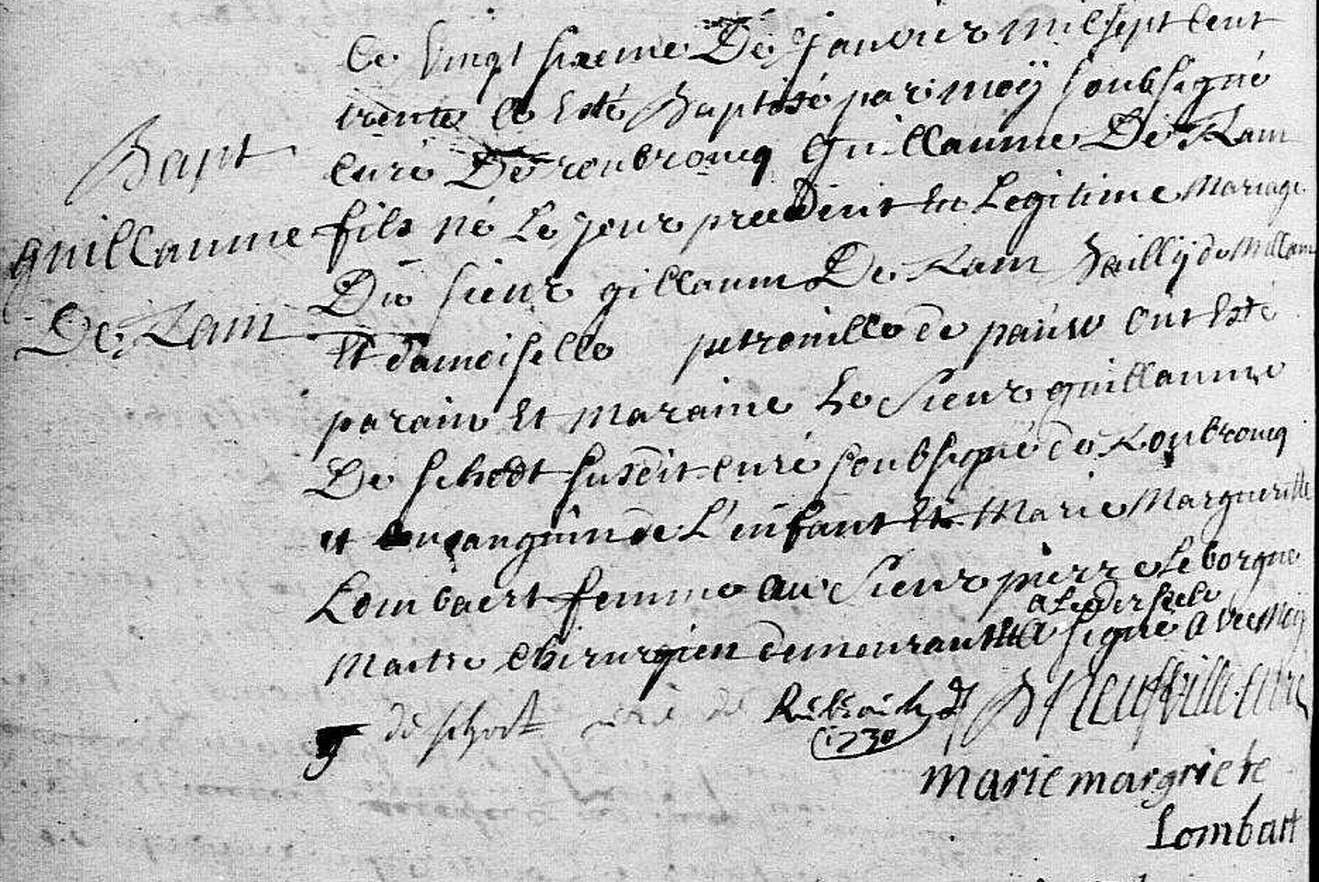 Bapt
guillaume
De Ram
Le vingt sixieme De Janvier mil sept cent
trente at Esté Baptisé par moÿ soubsigné
curé De roubroucq Guillaume De Ram
fils né Le jour precedent en Legitime Mariage
Du sieur gillaum De Ram Bailly de Millam
Et damoiselle petronille de pauw ont Esté
parain Et maraine Le Sieur guillaume
De schodt susdit curé soubsigné de Roubroucq
et de L'enfant Et Marie Margueritte
Lombaert femme au Sieur pierre Leborgne
a Lederseele
Maitre chirurgien demeurant signé avec moy
g de schodt curé de
1730
marie margriete
Lombart